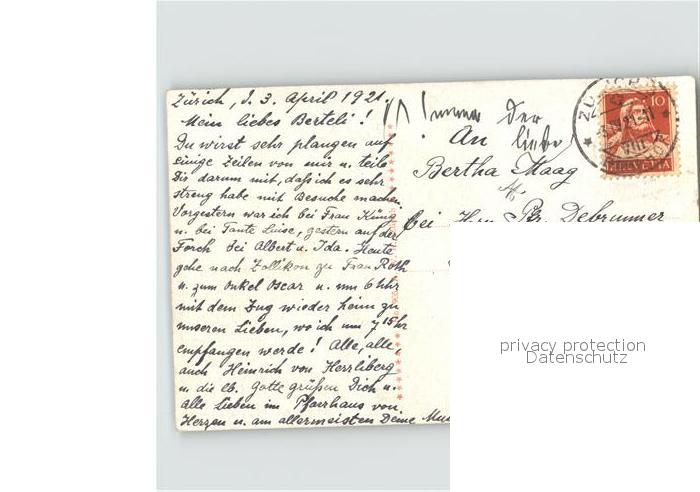 Zürich, d. 3. April 1921.
Mein liebes Berteli!
Du wirst sehr plangen auf
einige Zeilen von mir u. teile
Dir darum mit, daß ich es sehr
streng habe mit Besuche machen.
Vorgestern war ich bei Frau Küng
u. bei Tante Luise, gestern auf der
Forch bei Albert u. Ida. Heute
gehe nach Zollikon zu Frau Roth
u. zum Onkel Oscar u. um 6 Uhr
mit dem Zug wieder heim zu
unseren Lieben, wo ich um 7 15 hr
empfangen werde! Alle, alle,
auch Heinrich von Herrliberg
u. die lb. Gotte grüßen Dich u.
alle Lieben im Pfarrhaus von
Herzen u. am allermeisten Deine
der
liebe!
An
Bertha Maag
bei Hrn. Pfr. Debrunner
10
HELVETIA
privacy protection
Datenschutz